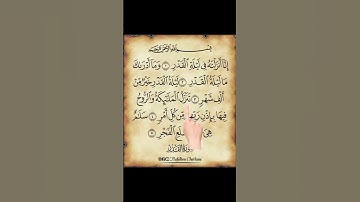 بسم الله الرحمن الرحيم
إِنَّا أَنزَلْنَٰهُ فِي لَيْلَةِ الْقَدْرِ ١ وَمَا أَدْرَىٰكَ
مَا لَيْلَةُ الْقَدْرِ ٢ لَيْلَةُ الْقَدْرِ خَيْرٌ مِّنْ
أَلْفِ شَهْرٍ ٣ تَنَزَّلُ الْمَلَٰئِكَةُ وَالرُّوحُ
فِيهَا بِإِذْنِ رَبِّهِم مِّن كُلِّ أَمْرٍ ٤ سَلَٰمٌ
هِيَ مَطْلَعِ الْفَجْرِ ٥